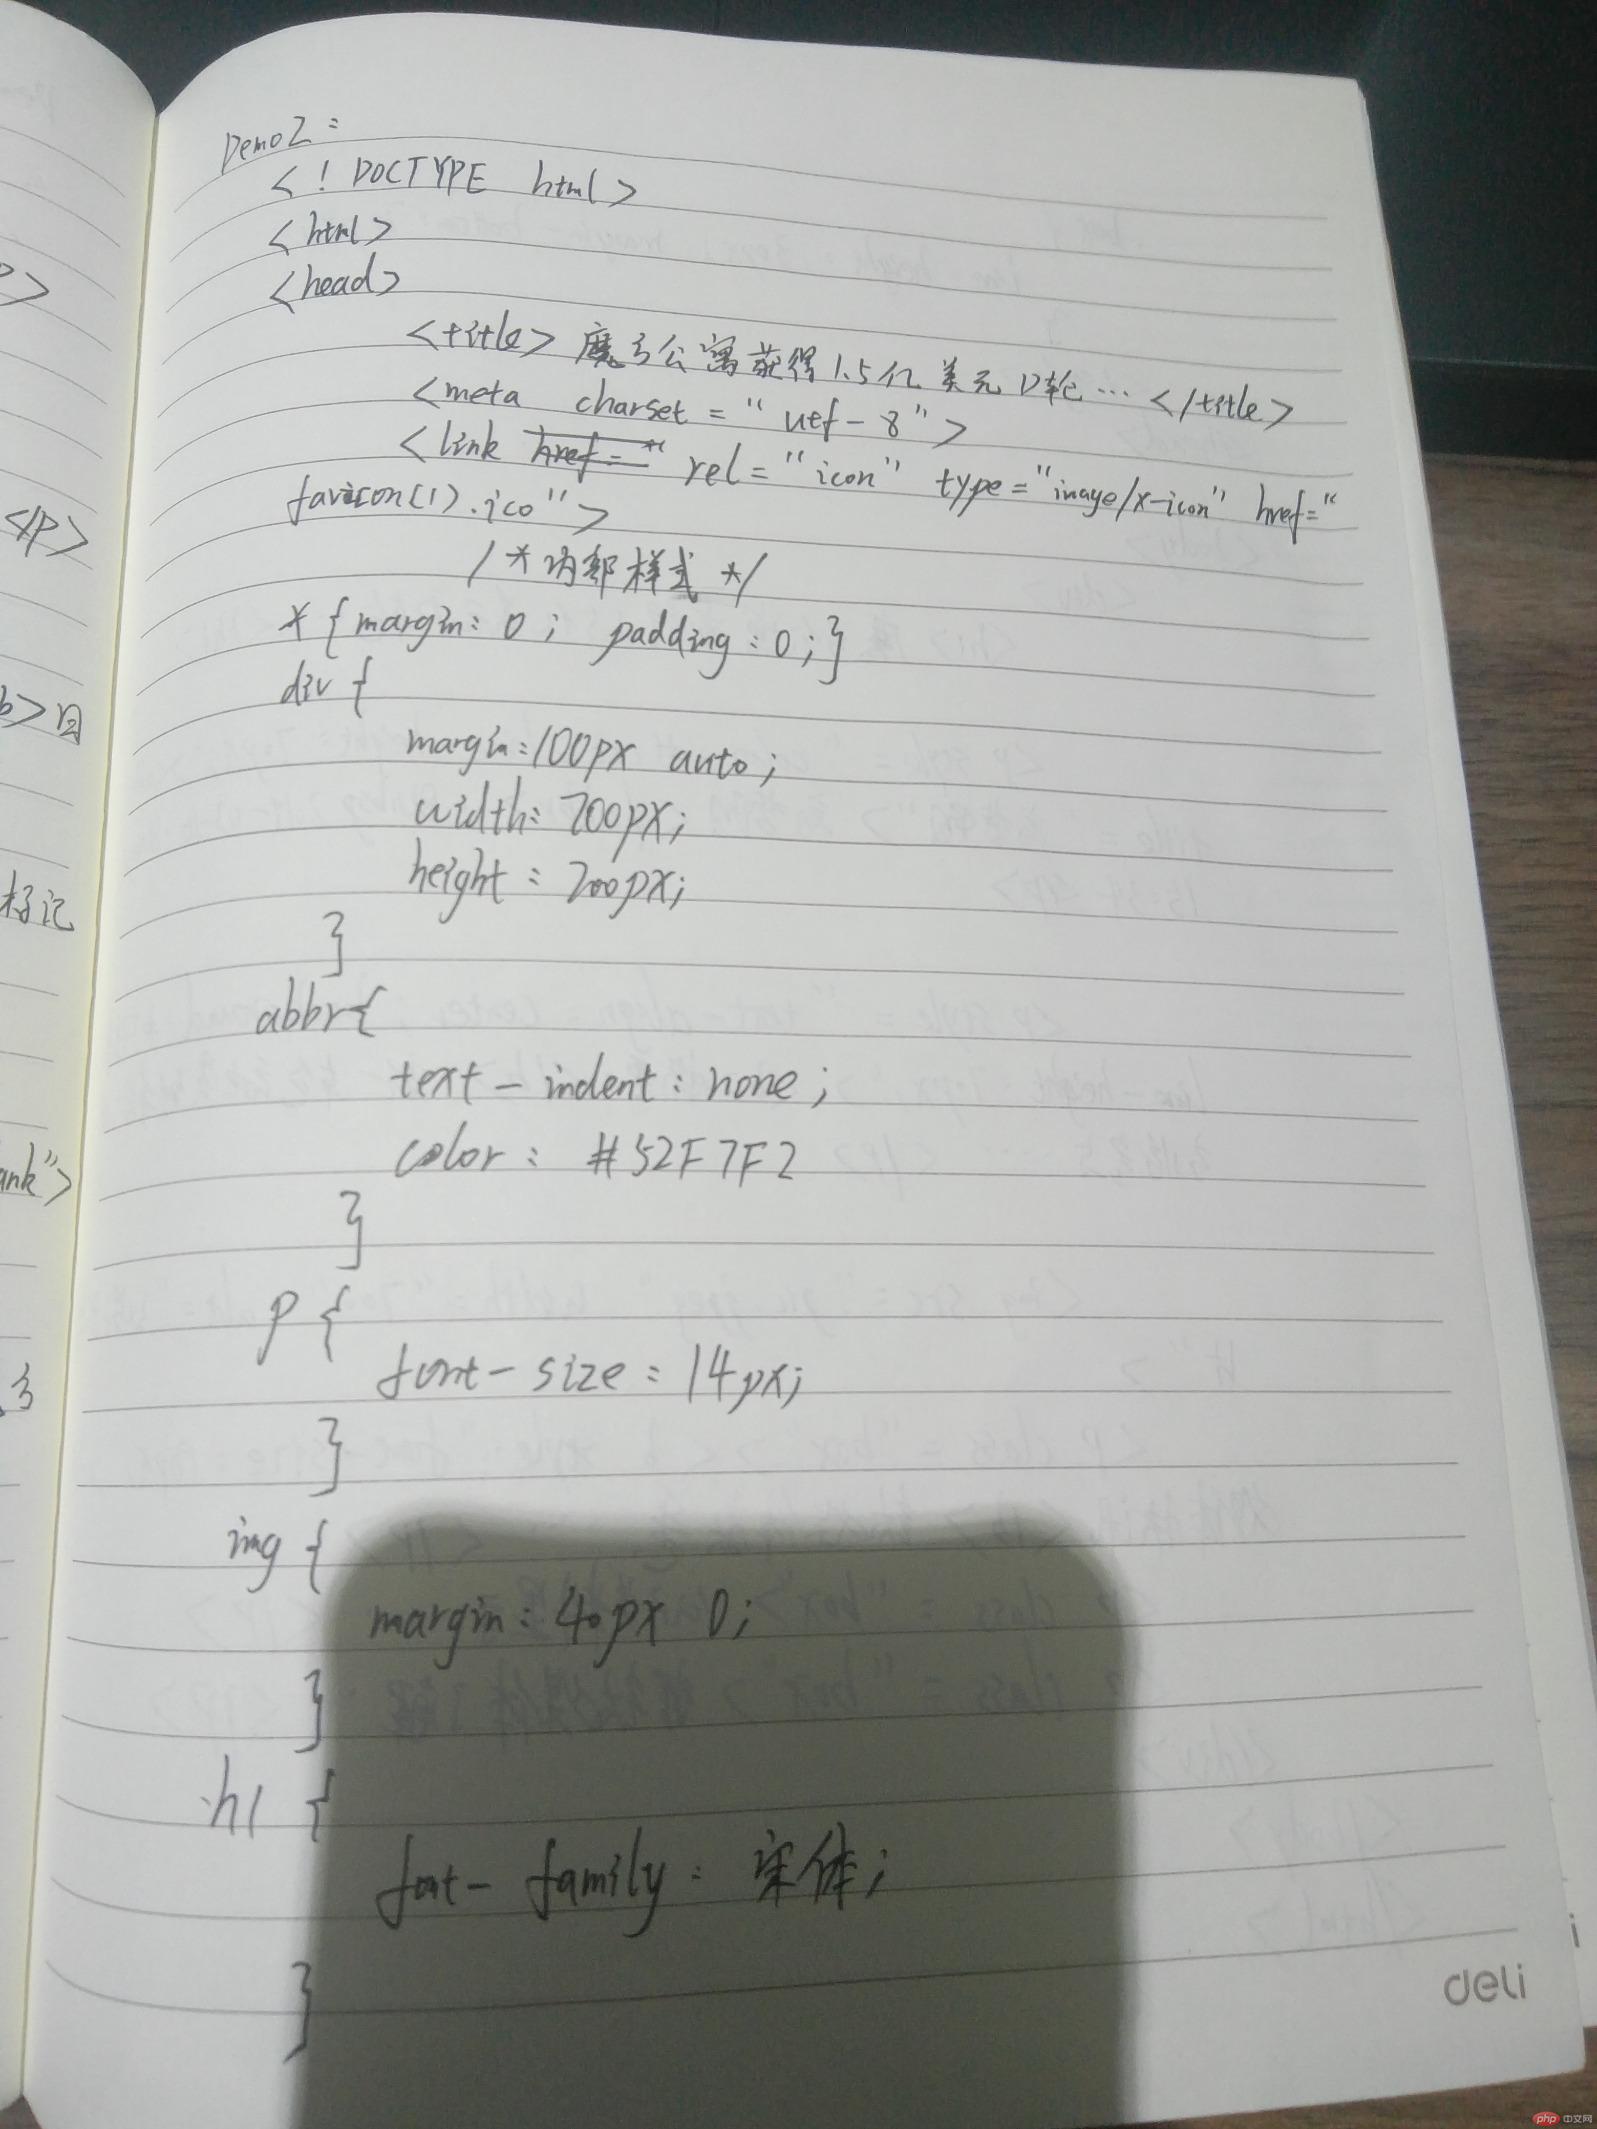 Demo2:
<!DOCTYPE html>
<html>
<head>
<title>魔方公寓获得1.5亿美元D轮…</title>
<meta charset="utf-8">
<link rel="icon" type="image/x-icon" href="
favicon(1).ico">
/*内部样式*/
*{margin:0; padding:0;}
div{
margin:100px auto;
width:700px;
height:200px;
}
abbr{
text-indent:none;
color:#52F7F2
}
p{
font-size:14px;
}
img{
margin:40px 0;
}
h1{
font-family:宋体;
}
deli
</p>
b>
标记
ank">
php 中文网